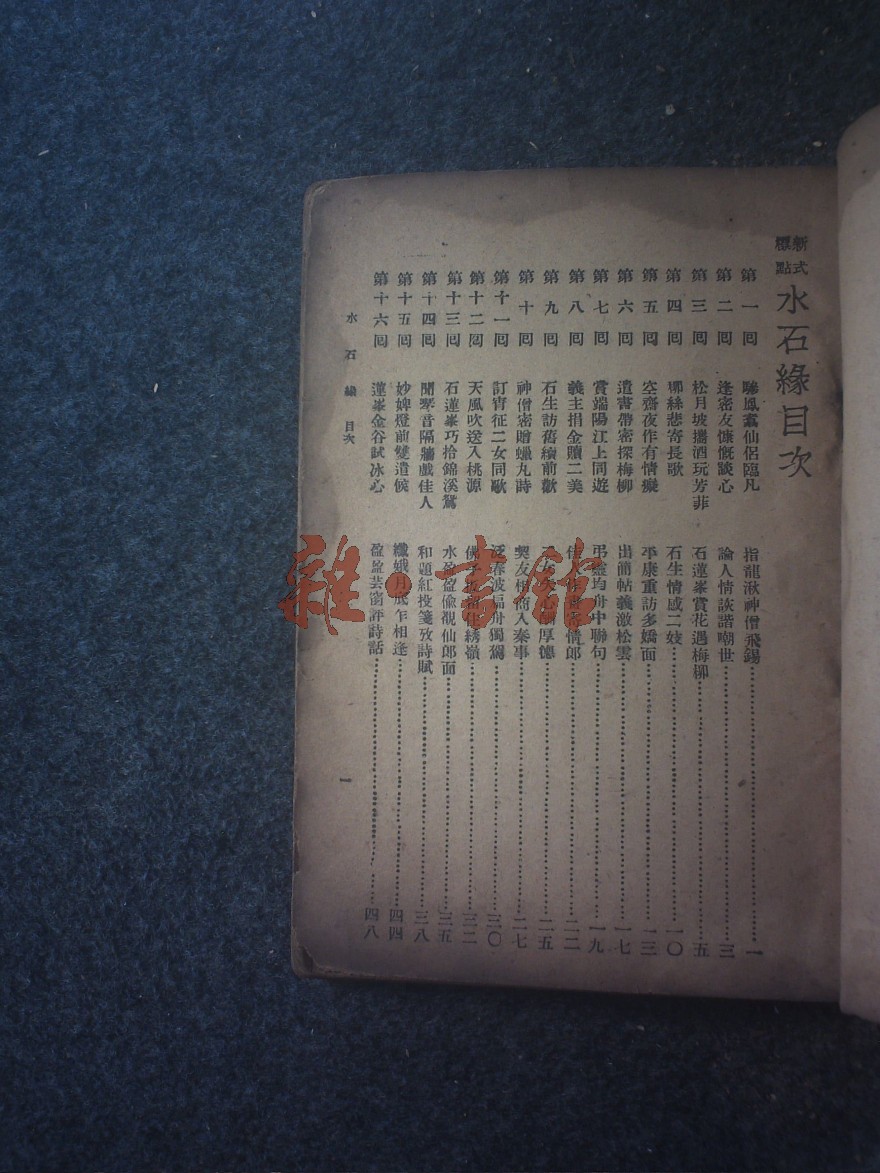 新式標點 水石緣目次
第一回 驂鳳鸞仙侶臨凡 指龍湫神僧飛錫 一
第二回 逢密友慷慨談心 論人情詼諧嘲世 三
第三回 松月坡攜酒玩芳菲 石蓮峯賞花遇梅柳 五
第四回 柳絲悲寄長歌 石生情感二妓 一〇
第五回 空齋夜作有情癡 平康重訪多嬌面 一三
第六回 遺書帶密探梅柳 出簡帖義激松雲 一七
第七回 賞端陽江上同遊 弔靈均舟中聯句 一九
第八回 義主捐金贖二美 情郎 二二
第九回 石生訪舊續前歡 厚德 二五
第十回 神僧密贈蠟丸詩 契友 入秦事 二七
第十一回 訂宵征二女同歌 泛春波扁舟獨 三〇
第十二回 天風吹送入桃源 佛子 繡嶺 三二
第十三回 石蓮峯巧拾錦溪鴛 水盈盈偸覷仙郎面 三五
第十四回 聞琴音隔牆戲佳人 和題紅投箋攷詩賦 三八
第十五回 妙婢燈前雙遣候 纖娥月底乍相逢 四四
第十六回 蓮峯金谷試冰心 盈盈芸窗評詩話 四八
水石緣 目次
一
雜·書館